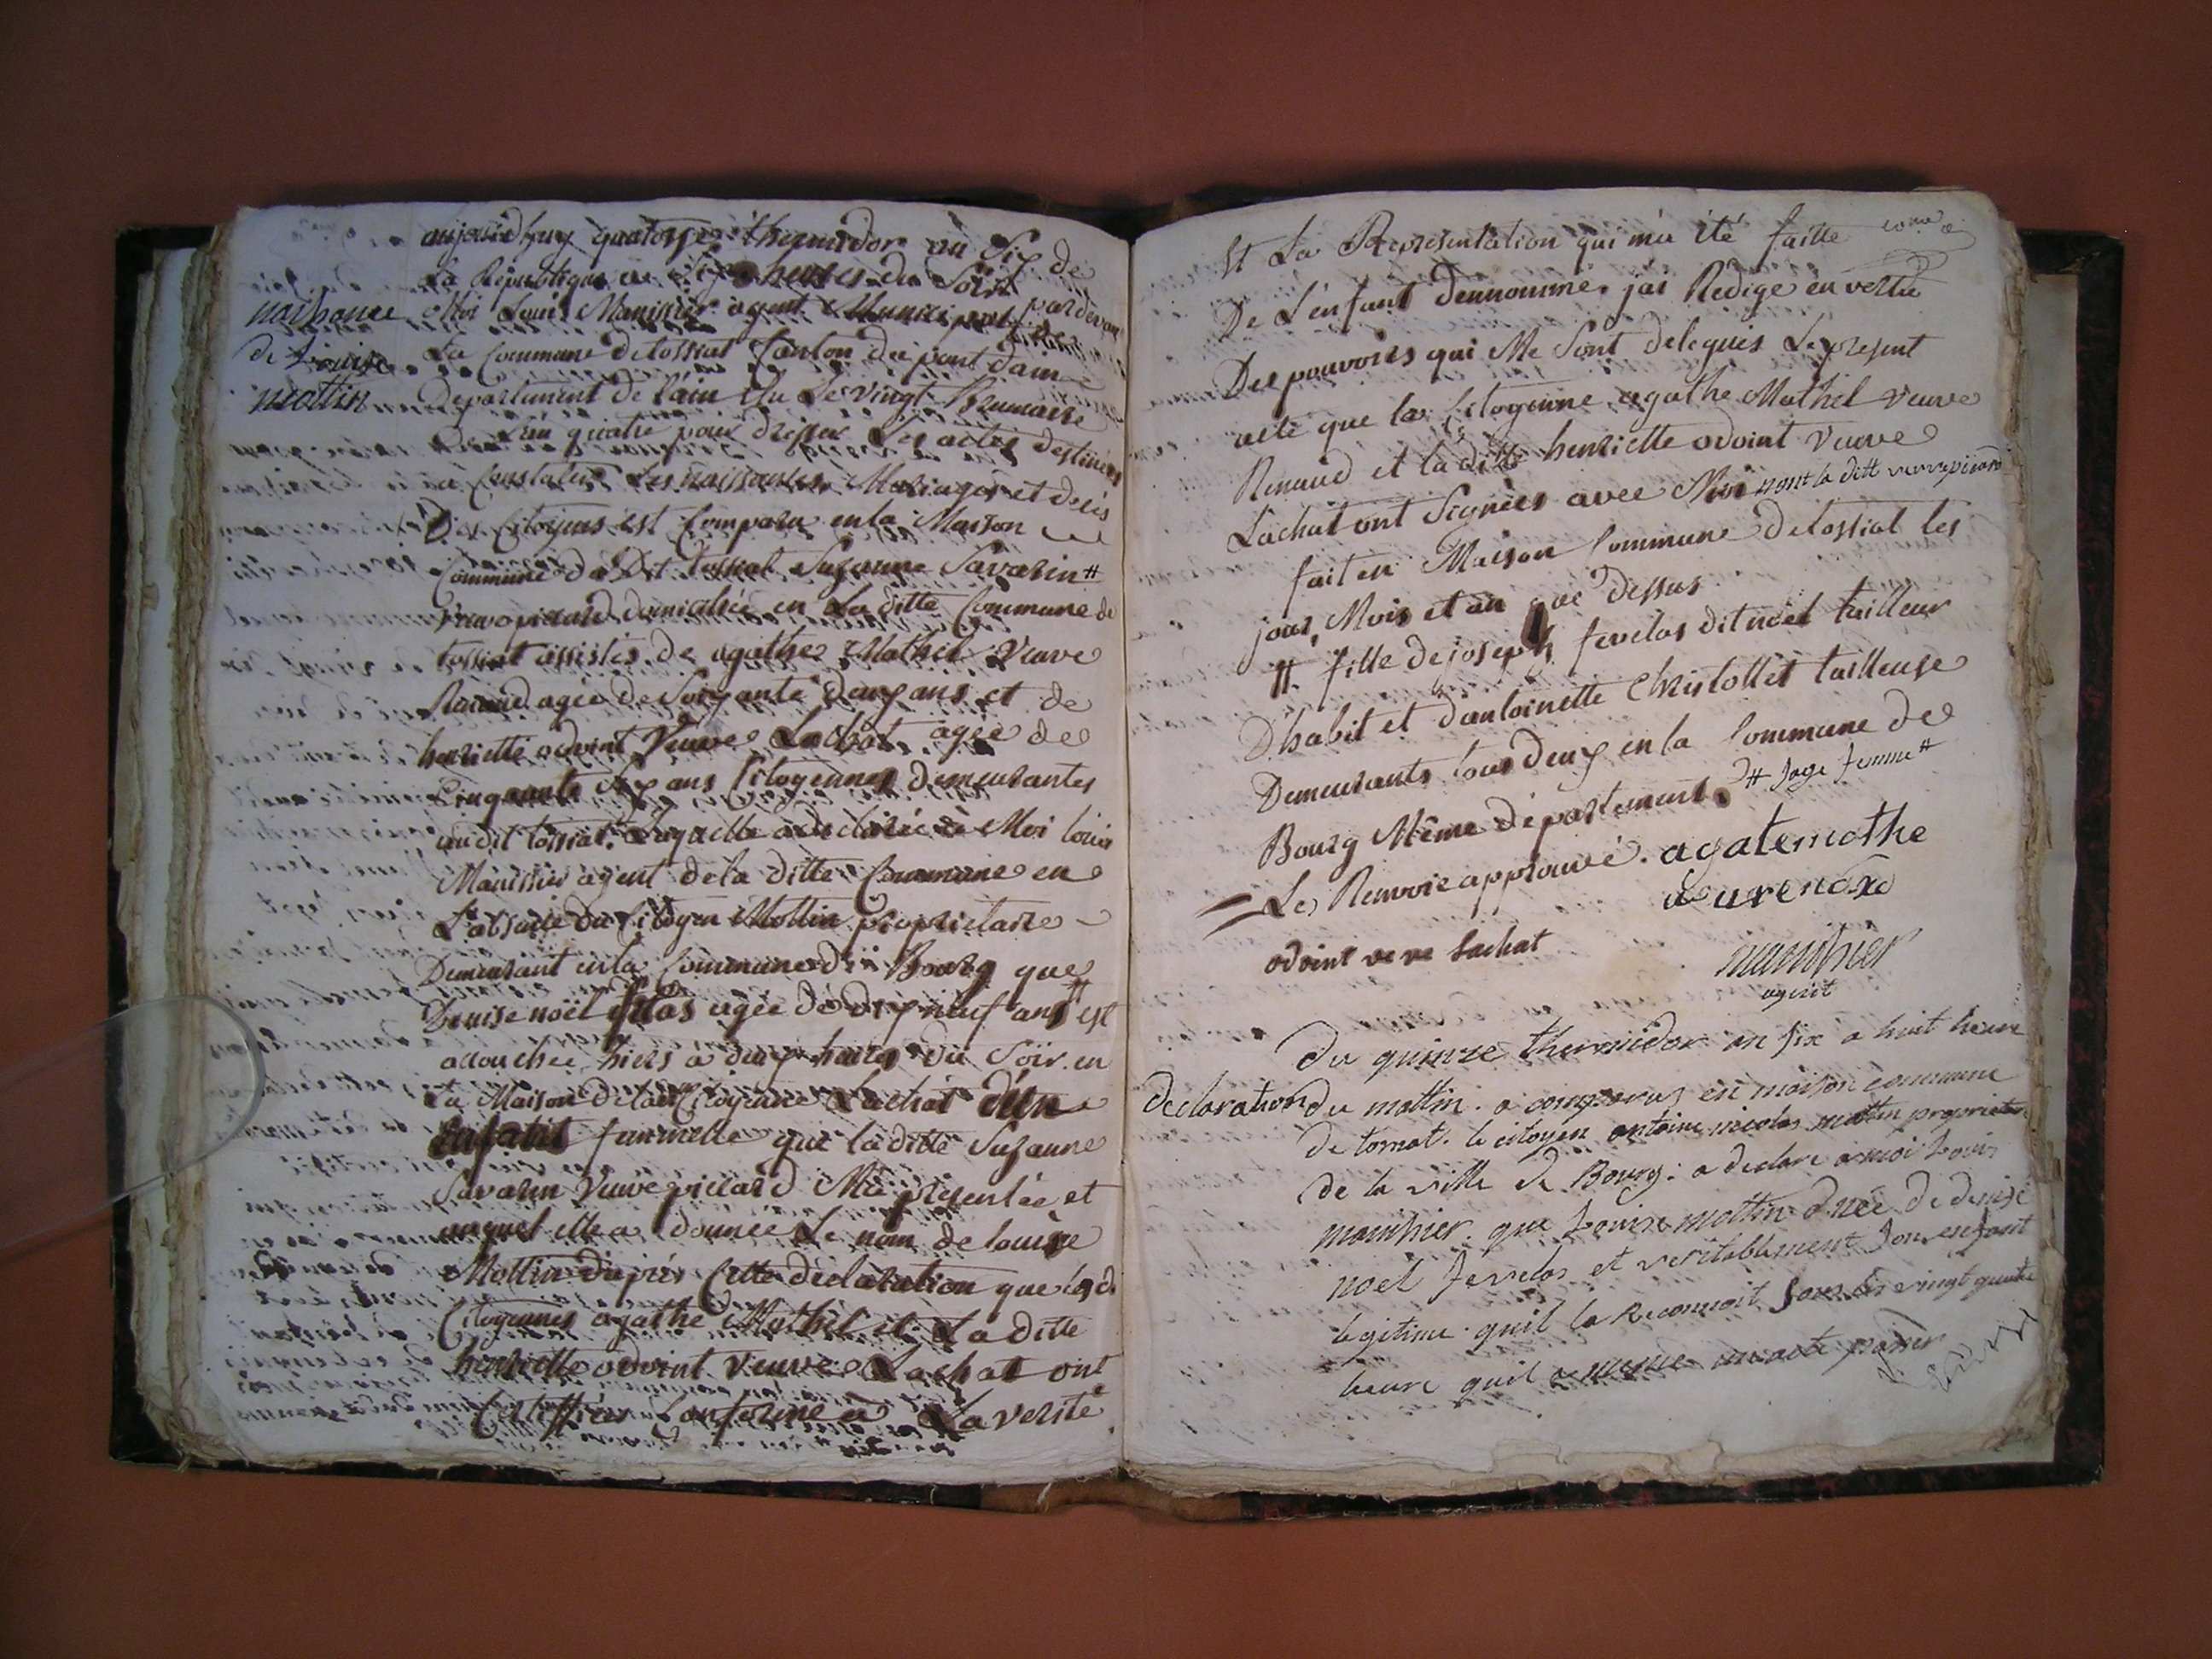 naissance
de Louise
mottin
aujourdhuy quatorze thermidor an Six de
La République a heures du Soir pardevant
Moi Louis Manissier agent Municipal de
La Commune de tossiat Canton du pont dain
Departement de l'ain Elu Le vingt Brumaire
De L'an quatre pour dresser Les actes destinés
a Constater Les naissances Mariages et decès
Des Citoyens est Comparu en la Maison
Commune du Dit tossiat Suzanne Savarin #
veuve picard domiciliée en La ditte Commune de
tossiat assistés de agathe Mathel Veuve
Renaud agée de Soixante deux ans et de
henriette odoint Veuve Lachat agée de
Cinquante Six ans Citoyennes demeurantes
au dit tossiat. Laquelle a declarée a Moi louis
Manissier agent de la ditte Commune en
L'absence du Citoyen Mottin proprietaire
Demeurant en la Commune de Bourg que
Denise noël agée de dix neuf ans # est
accouchee hiers a deux heures du Soir en
La Maison de la Citoyenne Lachat d'un
Enfant fummelle que la ditte Suzanne
Savarin Veuve picard M'a presentée et
auquel elle a donnée Le nom de louise
Mottin daprés Cette déclaration que les d.
Citoyennes agathe Mathel et La ditte
henriette odoint Veuve Lachat ont
Certiffiées Conforme a La verité
Et La Représentation qui m'a été faitte
De L'enfant dennommé, j'ai Rédigé en vertu
Des pouvoirs qui Me Sont delegués Le present
acte que la Citoyenne agathe Mathel veuve
Renaud et la ditte henriette odoint Veuve
Lachat ont Signées avec Moi non la ditt veuve picard
fait en Maison Commune de tossiat les
jour, Mois et an que Dessus
# fille de joseph fevelas dit noël tailleur
D'habit et d'antoinette Christollet tailleuse
Demeurants tous deux en la Commune de
Bourg Même département. # Sage femme #
Les Renvoie approuvé. agatemathe
odoint ve ve Lachat
agent
Du quinze thermidor an six a huit heure
Declaration du mattin. a comparus en maison commune
de le citoyen antoine nicolas mottin proprietere
de la ville de Bourg: a declare a moi Louis
que Louise mottin née de denise
noel fevelas et veritablement son enfant
legitime. quil la Reconnoit vingt quatre
heure quil a